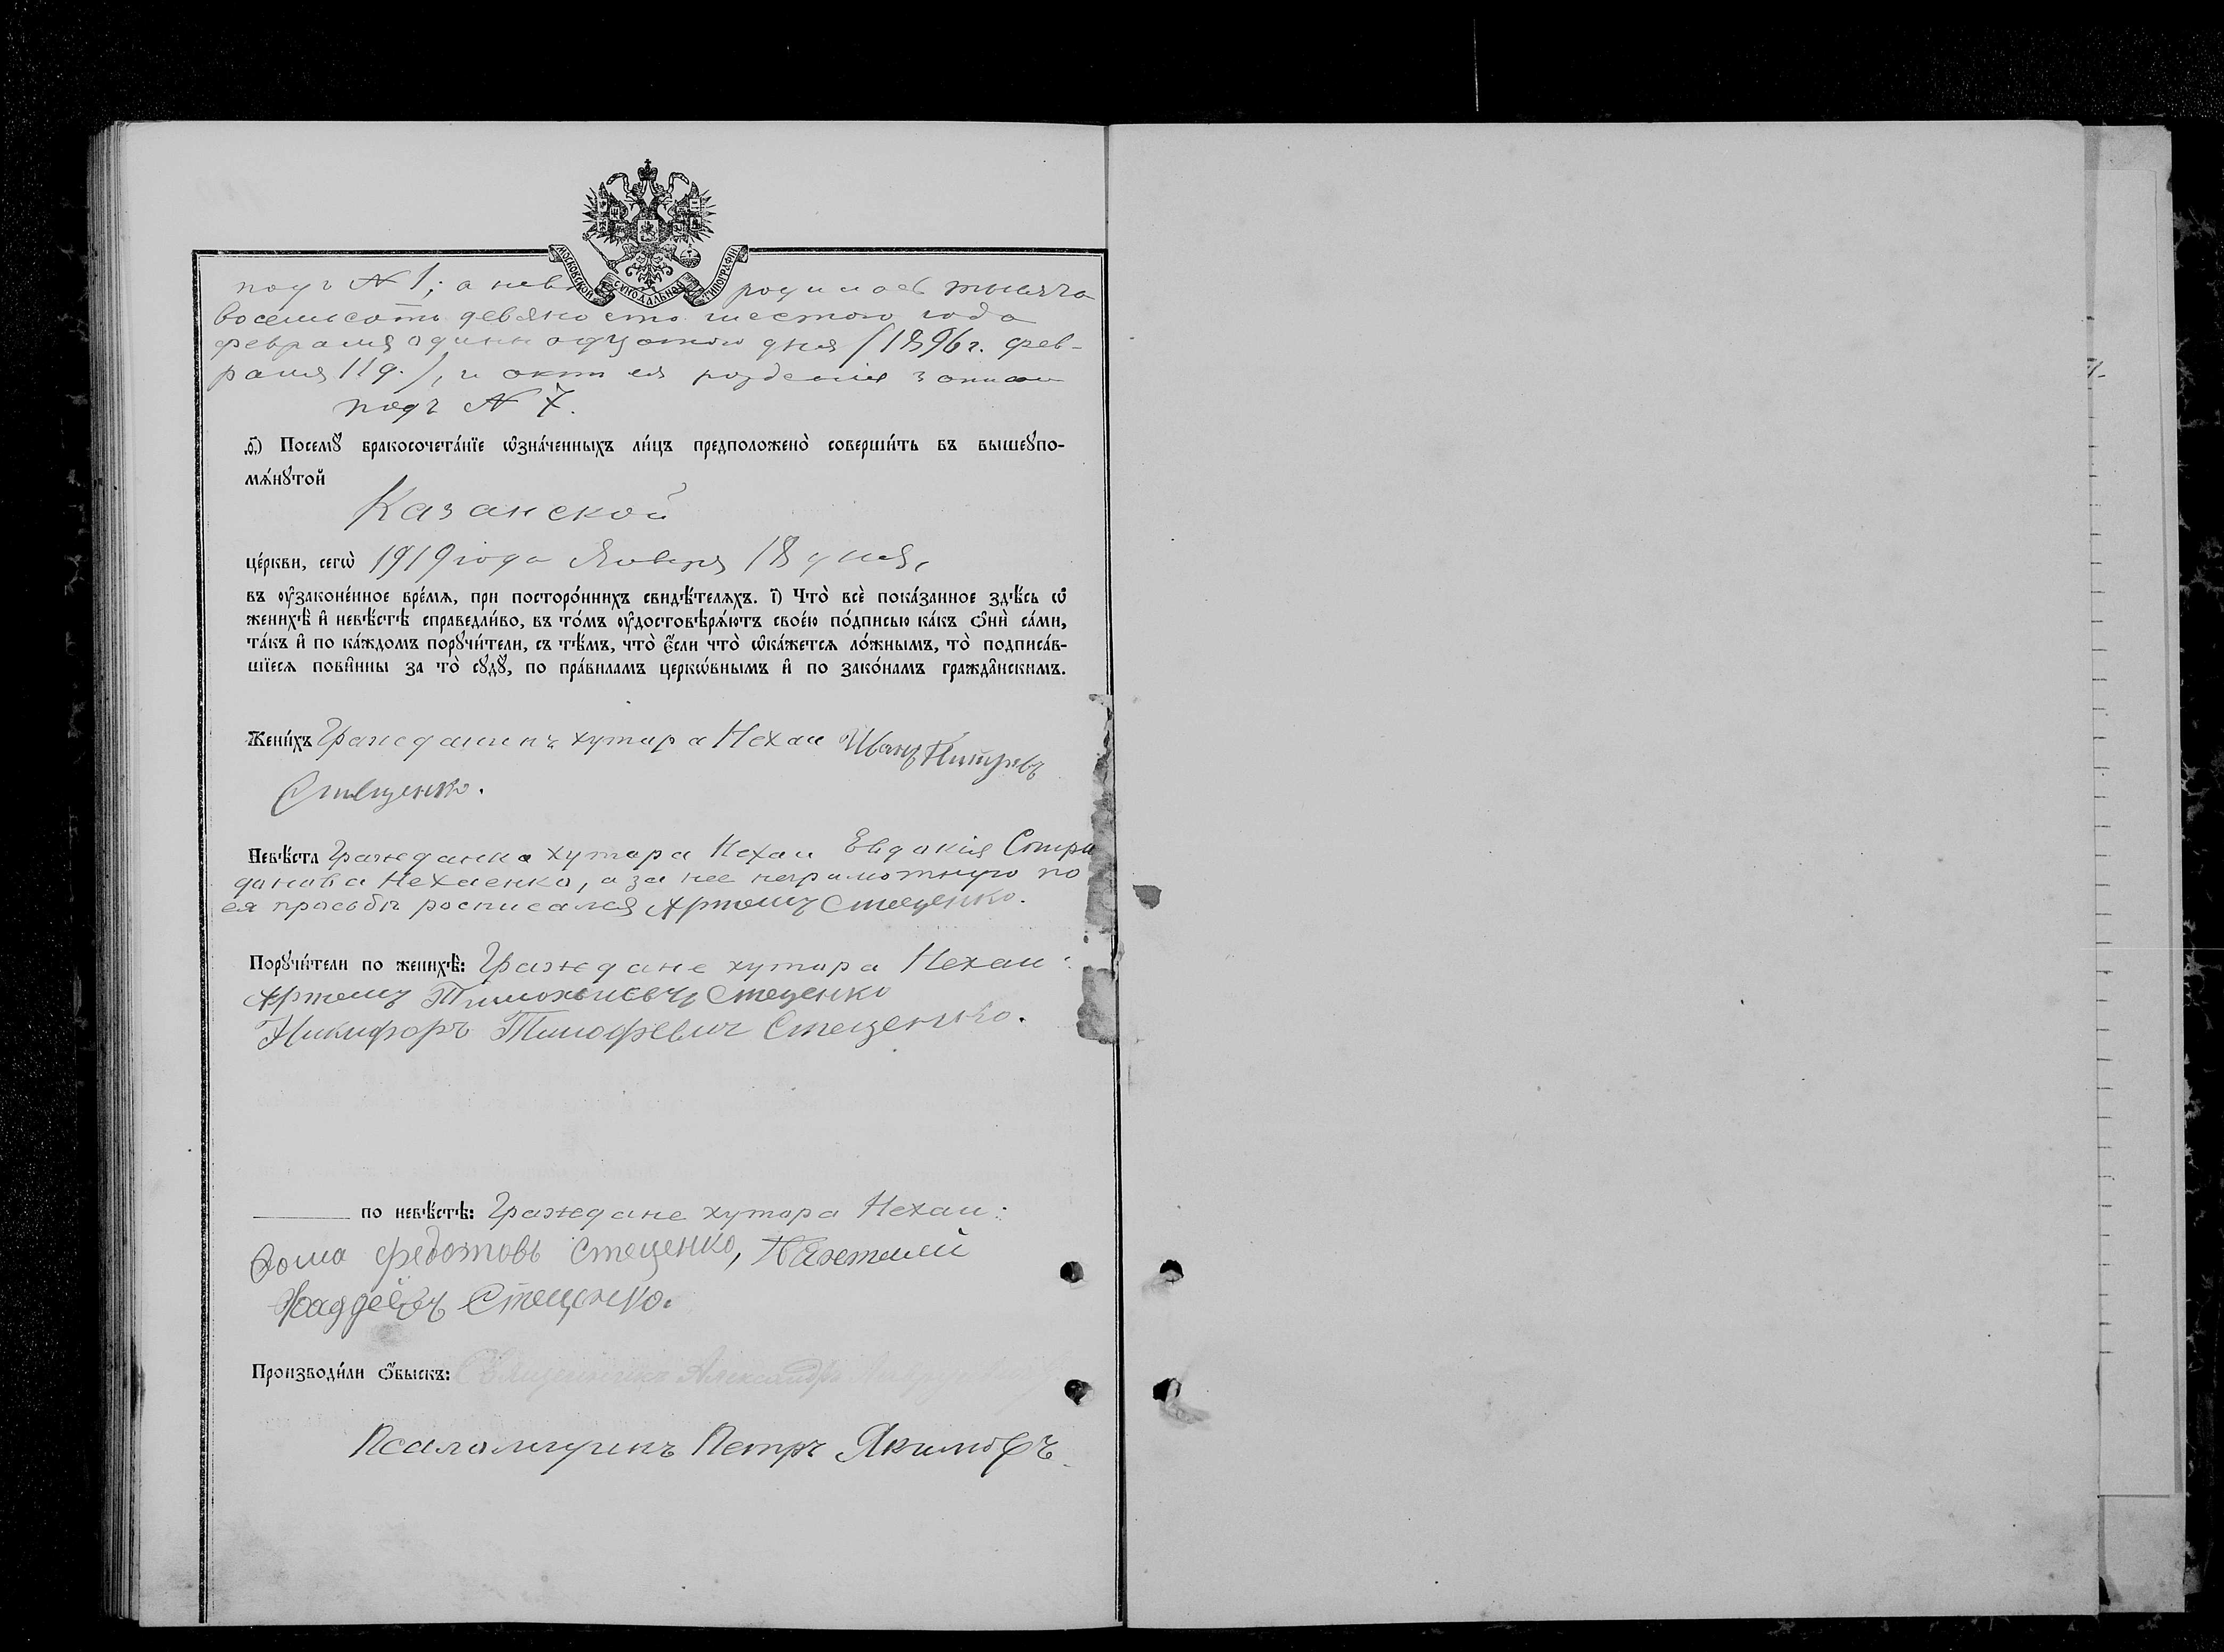 МОСКОВСКОЙ СѴНОДАЛЬНОЙ ТИПОГРАФІИ
подъ № 1; а нев родилась тысяча
восемьсотъ девяносто шестого года
февраля одиннадцатого дня (1896 г. фев-
раля 11 д.), и актъ ея рожденія записан
подъ № 7.
.ѳ҃.) Посемꙋ̀ бракосочета́нїе ѡ҆зна́ченныхъ ли́цъ предположено̀ соверши́ть въ вышеꙋпо-
мѧ́нꙋтой
Казанской
це́ркви, сегѡ̀ 1919 года Января 18 дня,
въ ᲂу҆законе́нное вре́мѧ, при посторо́ннихъ свидѣ́телѧхъ. і҃) Что̀ всѐ пока́занное здѣ́сь ѡ҆
женихѣ̀ и҆ невѣ́стѣ справедли́во, въ то́мъ ᲂу҆достовѣрѧ́ютъ свое́ю по́дписью ка́къ ѻ҆нѝ са́ми,
та́къ и҆ по ка́ждомъ порꙋчи́тели, съ тѣ́мъ, что̀ є҆́сли что̀ ѡ҆ка́жетсѧ ло́жнымъ, то̀ подписа́в-
шїесѧ пови́нны за то̀ сꙋдꙋ̀, по пра́виламъ церкѡ́внымъ и҆ по зако́намъ гражда́нскимъ.
Жени́хъ Гражданинъ хутора Нехаи Иванъ
Стеценко.
Невѣ́ста Гражданка хутора Нехаи Евдокія Спири
донова Нехаенко, а за нее неграмотную по
ея просьбѣ росписался Артемъ Стеценко.
Порꙋчи́тели по женихѣ̀: Граждане хутора Нехаи:
Артемъ Стеценко
Никифоръ Тимофѣевич Стеценко.
по невѣ́стѣ: Граждане хутора Нехаи:
Фома Федотовъ Стеценко,
Фаддеевъ Стеценко.
Производи́ли ѻ҆́быскъ: Священникъ Александръ
Псаломщикъ Петръ Якимовъ